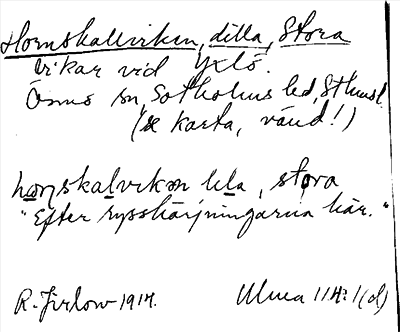 Hornskallviken, lilla, Stora
vikar vid Yxlö.
Ösmo sn, Sotholms hd, Sthmsl.
(se karta, vänd!)
hɷnskalvikən lila, stora
"Efter rysshärjningarna här."
R. Jirlow 1914. Ulma 114:1(d)